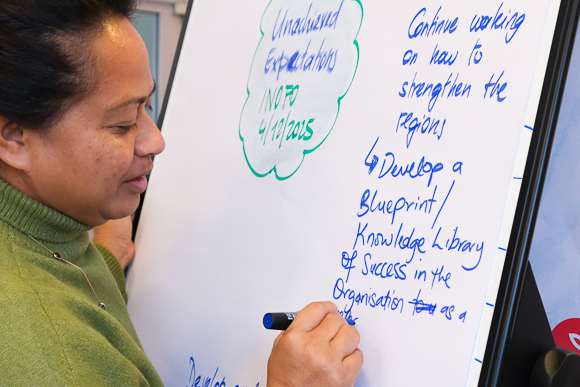 Unachieved
Expectations
INOFO
4/10/2025
Continue working
on how to
strengthen the
regions
↳ Develop a
Blueprint/
Knowledge Library
of Success in the
Organisation as a
Develop